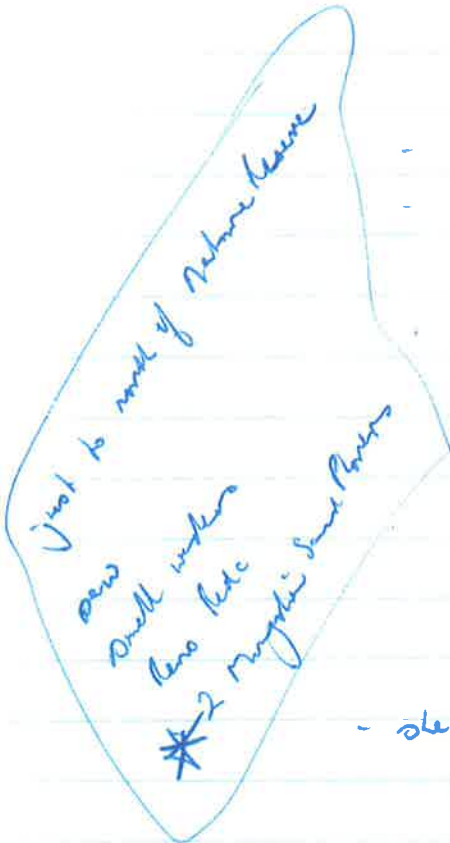 just to north of Nature Reserve
saw
small waders
Reno Redc
* 2 Mongolian Sand Plovers
-
-
- she